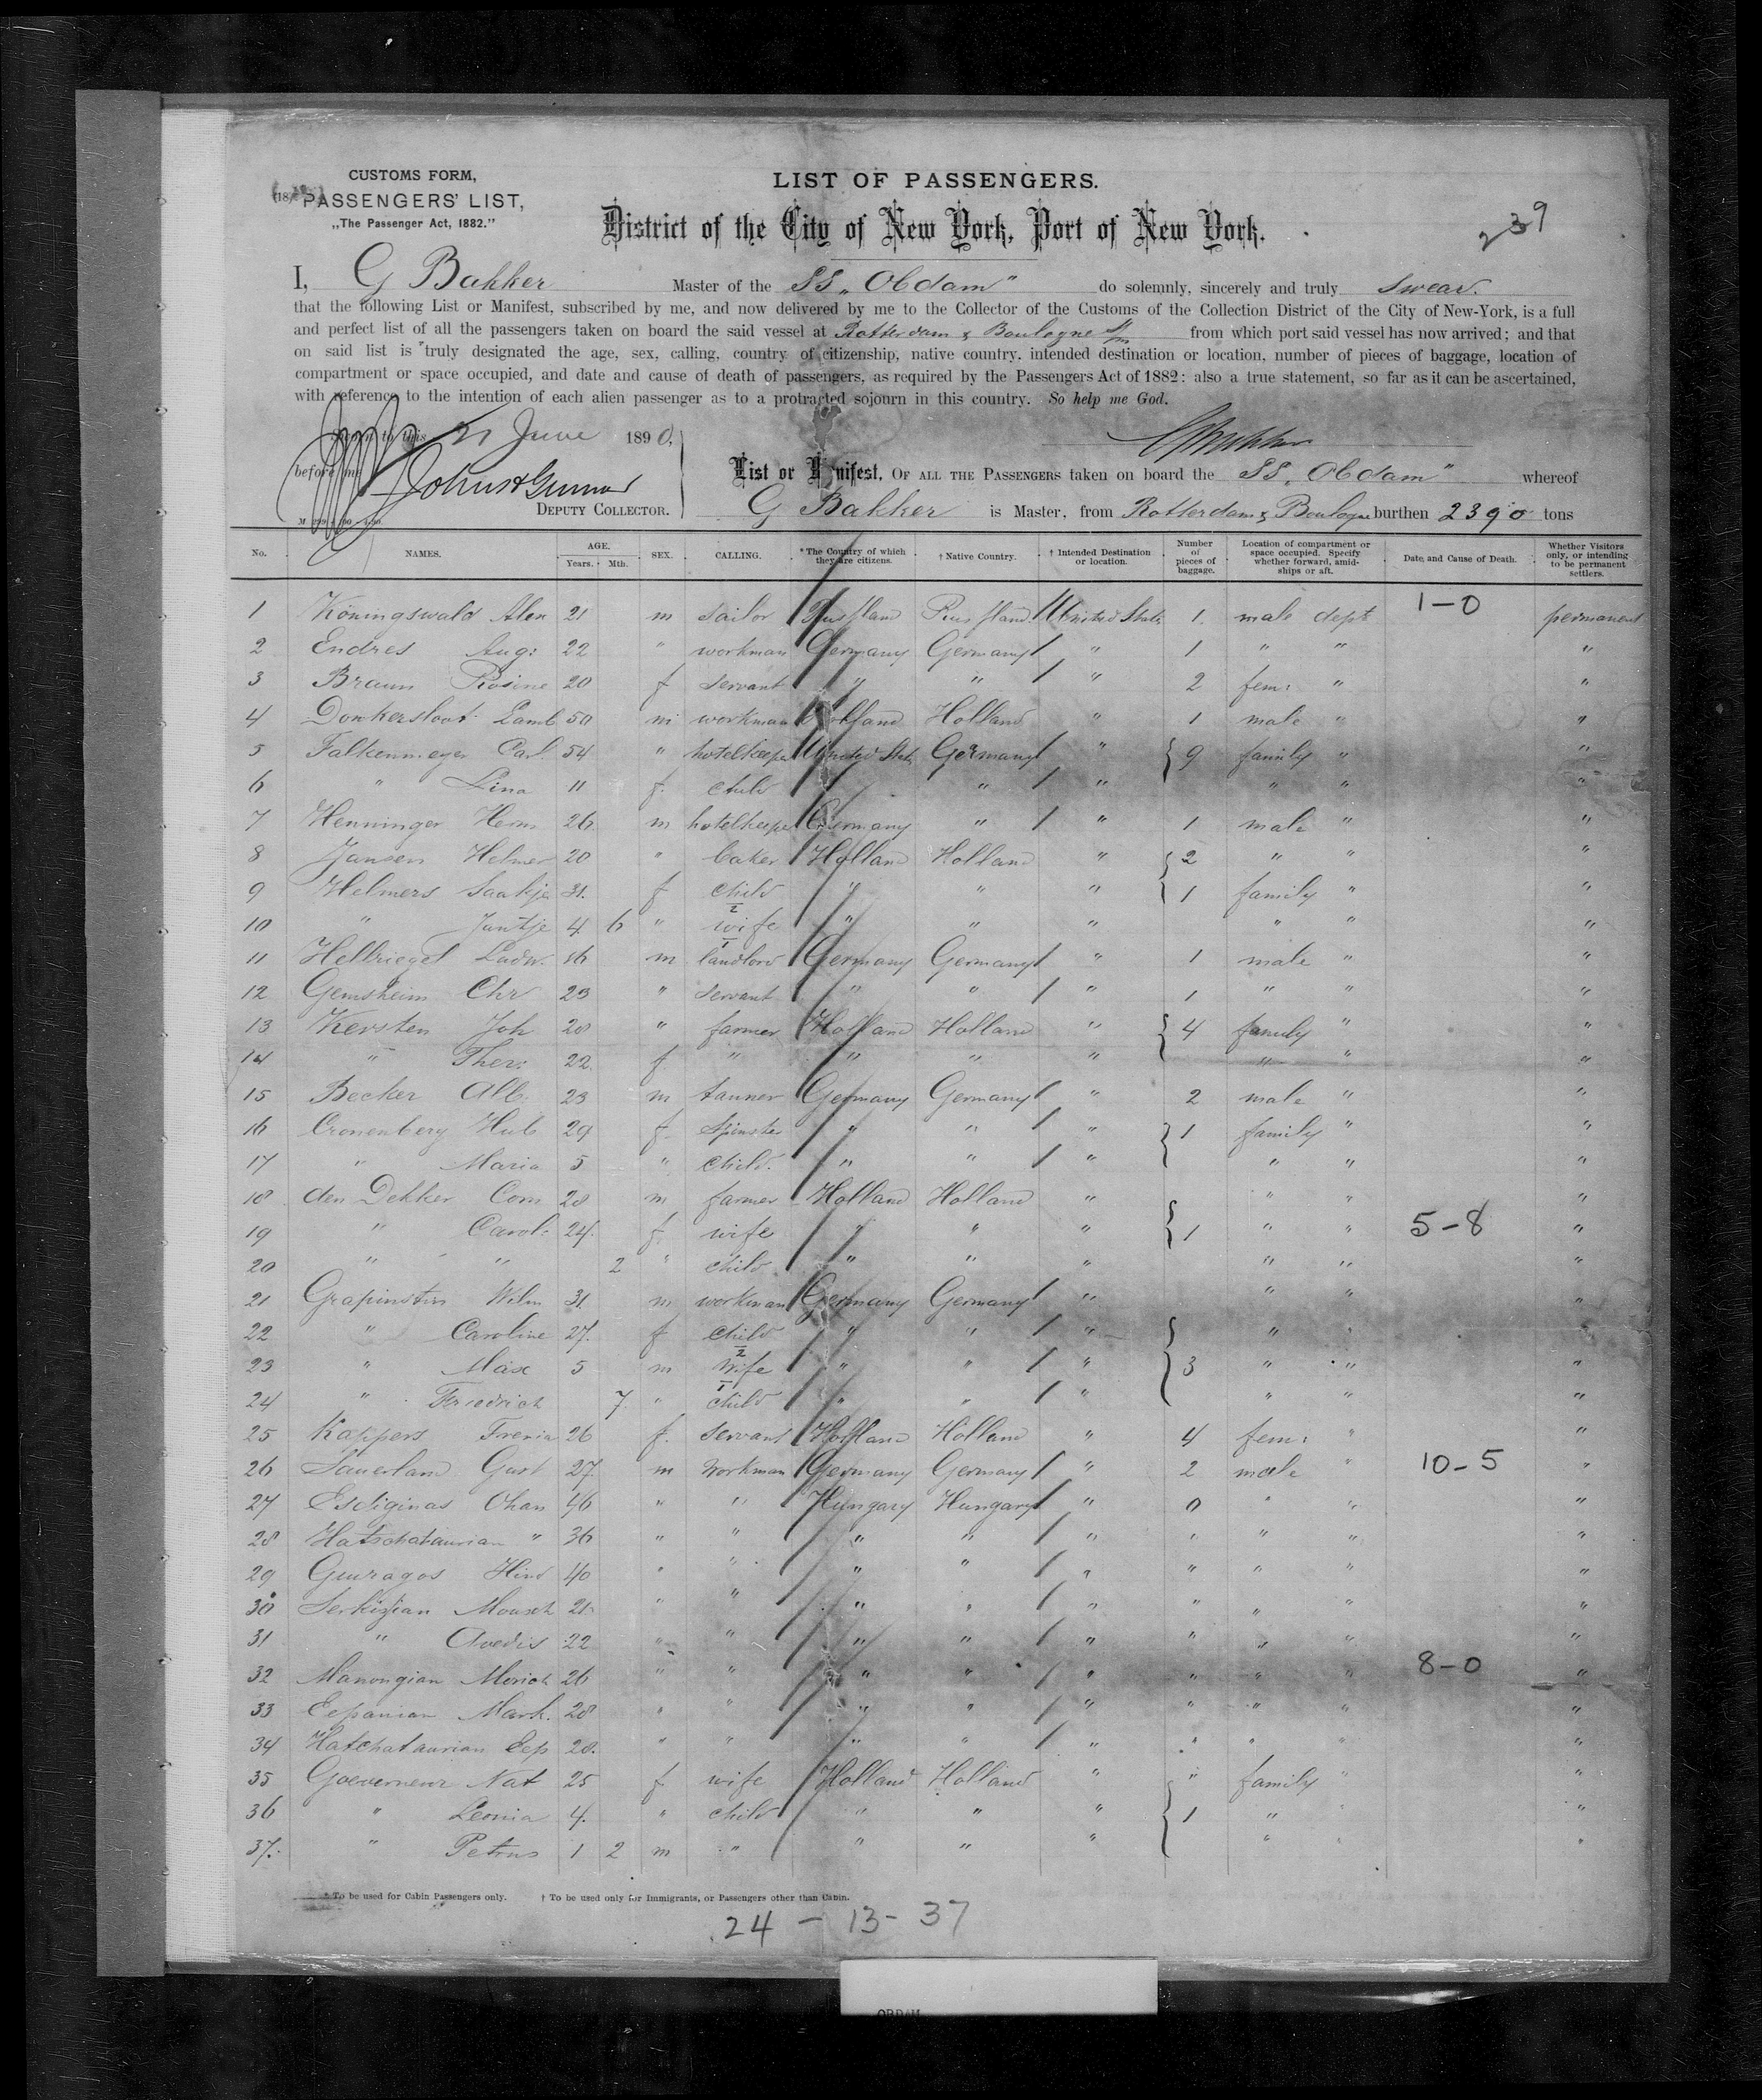 CUSTOMS FORM,
PASSENGERS' LIST,
„The Passenger Act, 1882."
LIST OF PASSENGERS.
District of the City of New York, Port of New York.
239
I, G Bakker Master of the SS „Obdam" do solemnly, sincerely and truly swear.
that the following List or Manifest, subscribed by me, and now delivered by me to the Collector of the Customs of the Collection District of the City of New-York, is a full
and perfect list of all the passengers taken on board the said vessel at Rotterdam & Boulogne s/m from which port said vessel has now arrived; and that
on said list is truly designated the age, sex, calling, country of citizenship, native country, intended destination or location, number of pieces of baggage, location of
compartment or space occupied, and date and cause of death of passengers, as required by the Passengers Act of 1882: also a true statement, so far as it can be ascertained,
with reference to the intention of each alien passenger as to a protracted sojourn in this country. So help me God.
to this 21 June 1890,
before me
DEPUTY COLLECTOR.
GBakker
List or Manifest, OF ALL THE PASSENGERS taken on board the SS „Obdam" whereof
G Bakker is Master, from Rotterdam & Boulogne burthen 2390 tons
No. NAMES. AGE. Years. Mth. SEX. CALLING. * The Country of which they are citizens. † Native Country. † Intended Destination or location. Number of pieces of baggage. Location of compartment or space occupied. Specify whether forward, amidships or aft. Date and Cause of Death. Whether Visitors only, or intending to be permanent settlers.
1 Köningswald Alex 21 m sailor Russland Russland United States 1. male dept 1-0 permanent
2 Endres Aug: 22 " workman Germany Germany " 1 " " "
3 Braun Rosine 20 f servant " " " 2 fem: " "
4 Donkersloot Lamb 50 m workman Holland Holland " 1 male " "
5 Falkenmeyer Carl 54 " hotelkeeper United States Germany " 9 family " "
6 " Lina 11 f. child " " " " "
7 Henninger Herm 26 m hotelkeeper Germany " " 1 male " "
8 Jansen Helmer 20 " baker Holland Holland " 2 " " "
9 Helmers Saakje 31. f child 2 " " " 1 family " "
10 " Jantje 4 6 " wife 1 " " " " " "
11 Hellriegel Ludw. 16 m landlord Germany Germany " 1 male " "
12 Gernsheim Chr 23 " servant " " " 1 " " "
13 Kersten Joh 28 " farmer Holland Holland " 4 family " "
14 " Ther: 22. f " " " " " " "
15 Becker Alb. 23 m tanner Germany Germany " 2 male " "
16 Cronenberg Hub 29 f. Spinster " " " 1 family " "
17 " Maria 5 " child. " " " " " "
18 den Dekker Corn 28 m farmer Holland Holland " " " "
19 " Carol: 24. f. wife " " " 1 " " 5-8 "
20 " " 2 " child " " " " " "
21 Grapinstin Wilm 31. m workman Germany Germany " " " "
22 " Caroline 27. f child 2 " " " " " "
23 " Max 5 m Wife 1 " " " 3 " " "
24 " Friedrich 7. " child " " " " " "
25 Kappers Frenia 26 f. servant Holland Holland " 4 fem: " "
26 Sauerland Gust 27 m Workman Germany Germany " 2 male " 10-5 "
27 Esdiginas Ohan 46 " " Hungary Hungary " 0 " " "
28 Hatschataurian " 36 " " " " " " " " "
29 Guuragos Hind 40 " " " " " " " " "
30 Serkizian Mousch 21. " " " " " " " " "
31 " Avedis 22 " " " " " " " " "
32 Manongian Morich 26 " " " " " " " " 8-0 "
33 Eepanian Mark. 28 " " " " " " " " "
34 Hatchataurian Eep 28. " " " " " " " " "
35 Goeverneur Nat 25 f wife Holland Holland " " family " "
36 " Leonia 4. " child " " " 1 " " "
37. " Petrus 1 2 m " " " " " " "
* To be used for Cabin Passengers only. † To be used only for Immigrants, or Passengers other than Cabin.
24 - 13 - 37